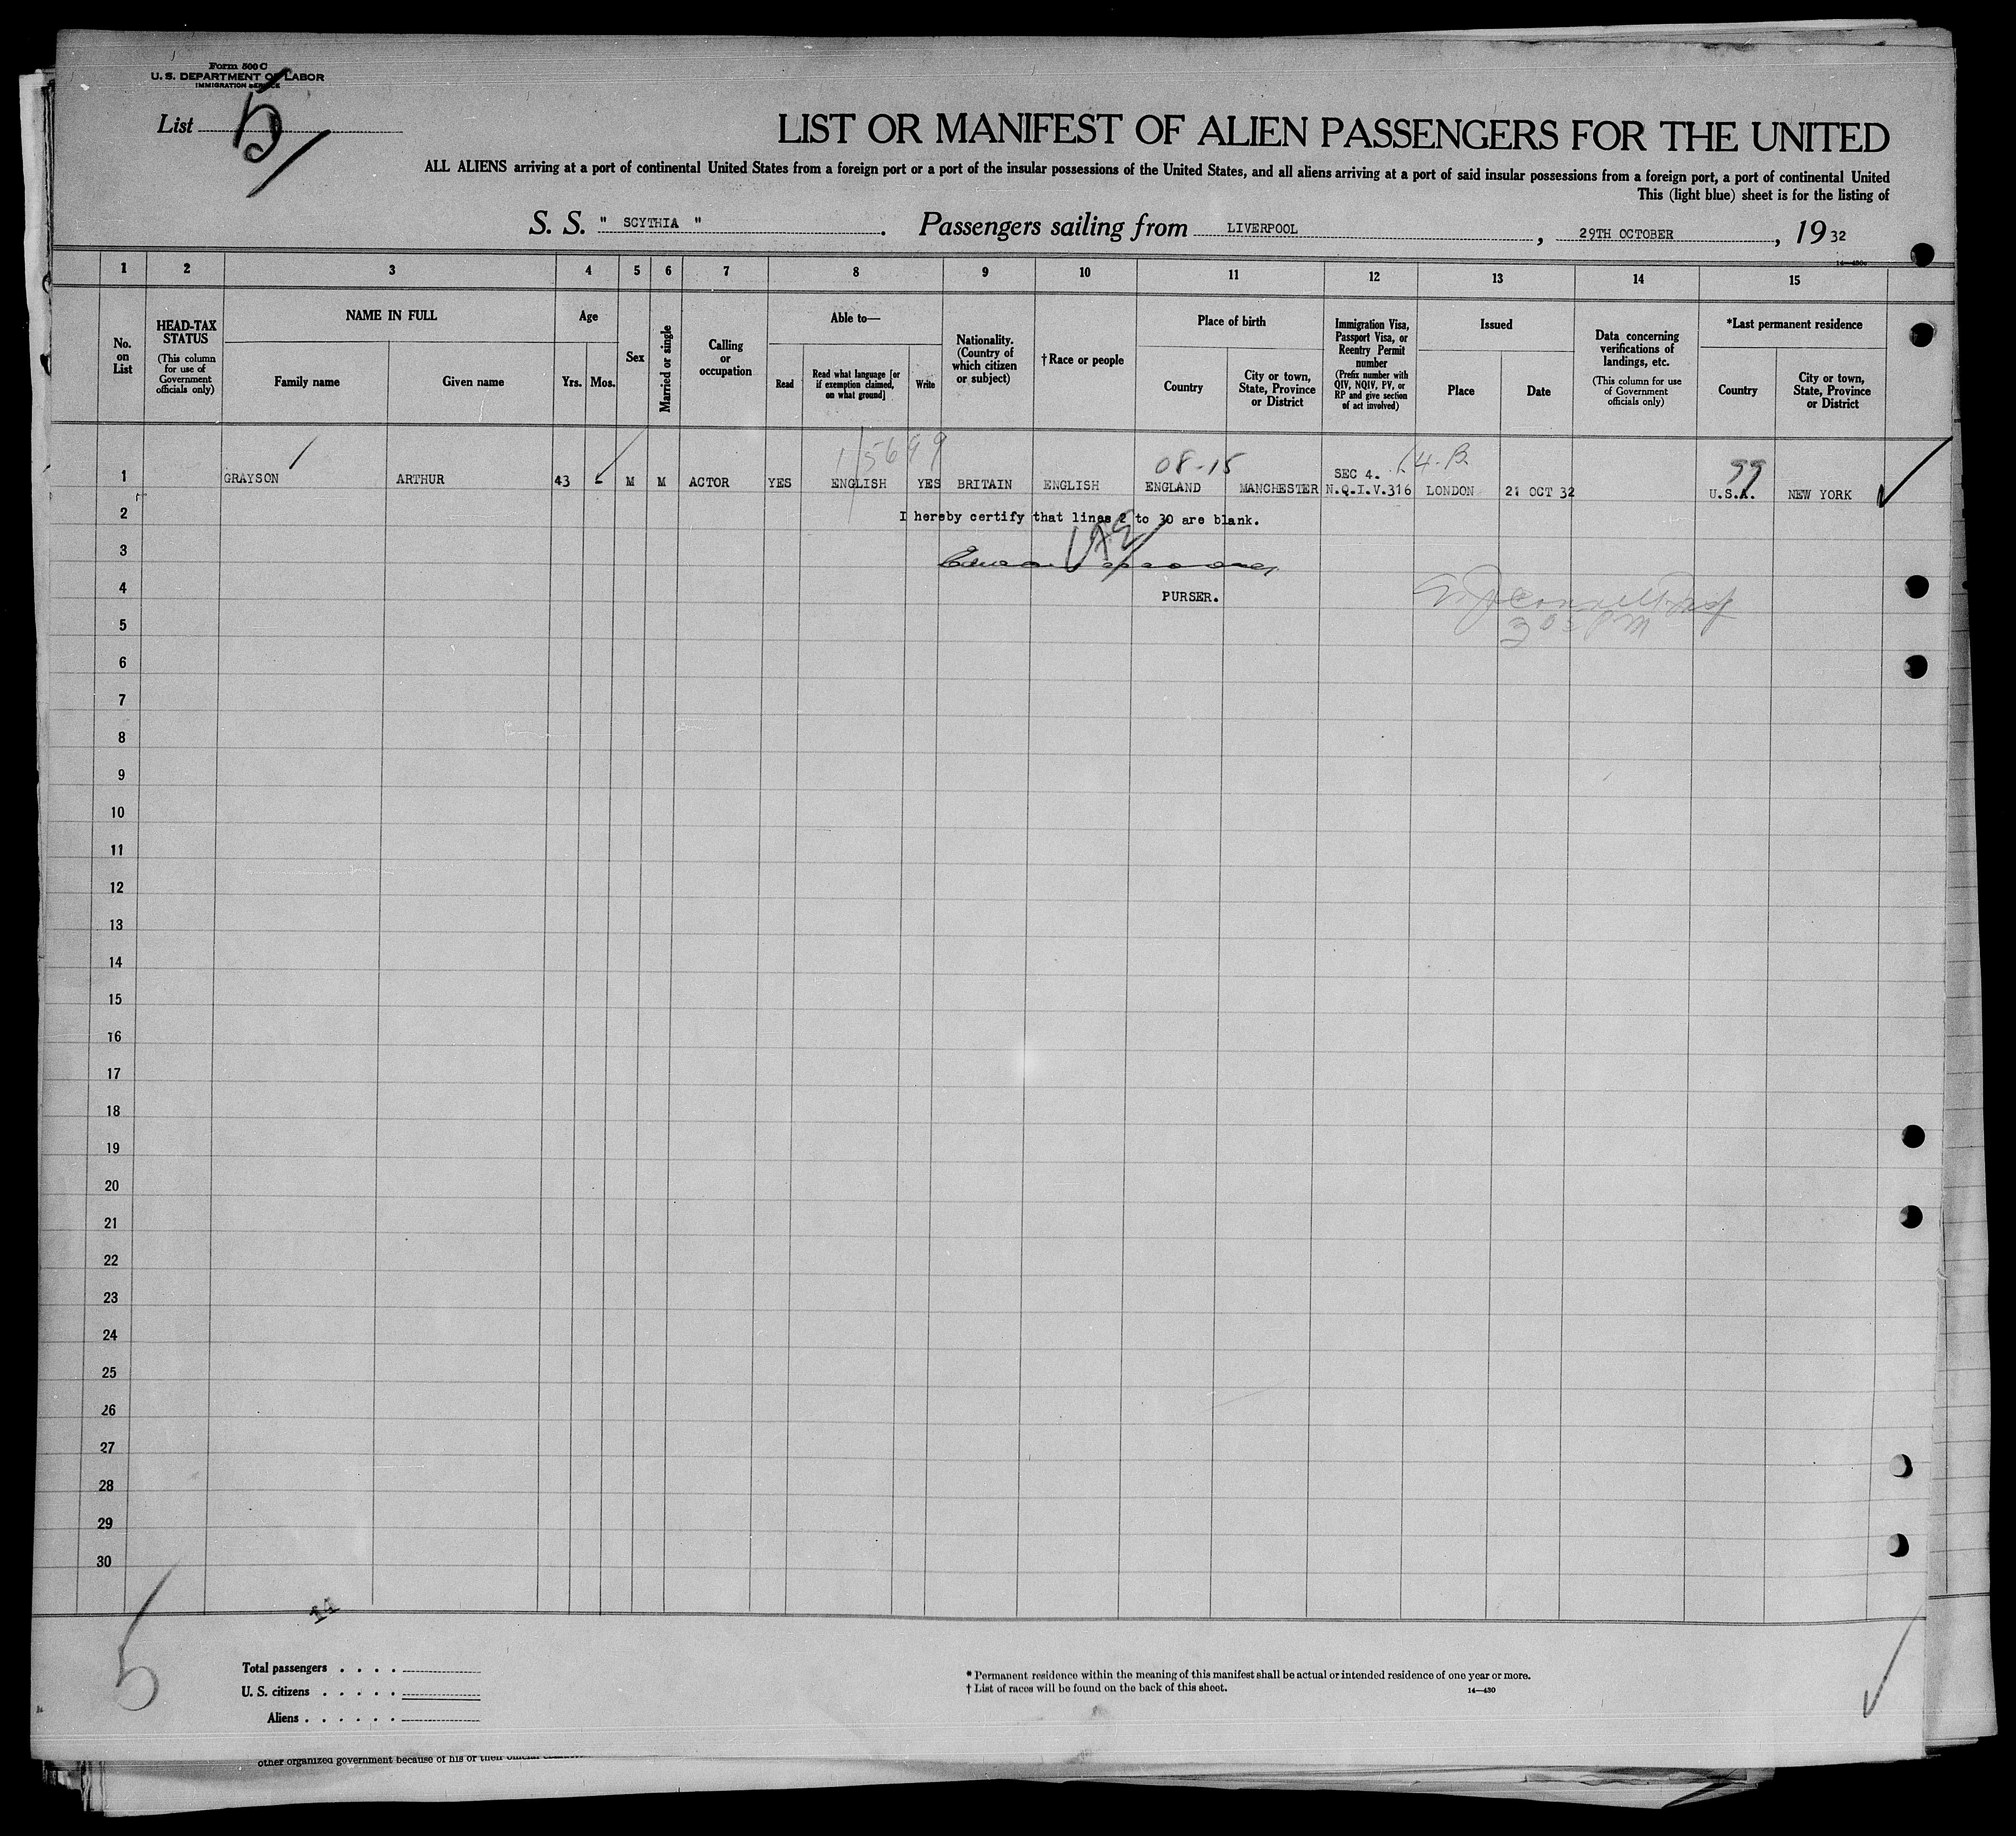 Form 500 C
U. S. DEPARTMENT OF LABOR
IMMIGRATION SERVICE
List 5
LIST OR MANIFEST OF ALIEN PASSENGERS FOR THE UNITED
ALL ALIENS arriving at a port of continental United States from a foreign port or a port of the insular possessions of the United States, and all aliens arriving at a port of said insular possessions from a foreign port, a port of continental United
This (light blue) sheet is for the listing of
S. S. " SCYTHIA " . Passengers sailing from LIVERPOOL , 29TH OCTOBER , 19 32
14—430
1 2 3 4 5 6 7 8 9 10 11 12 13 14 15
No. on List
HEAD-TAX STATUS
(This column for use of Government officials only)
NAME IN FULL
Family name
Given name
Age
Yrs. Mos.
Sex
Married or single
Calling or occupation
Able to—
Read
Read what language [or if exemption claimed, on what ground]
Write
Nationality. (Country of which citizen or subject)
† Race or people
Place of birth
Country
City or town, State, Province or District
Immigration Visa, Passport Visa, or Reentry Permit number
(Prefix number with QIV, NQIV, PV, or RP and give section of act involved)
Issued
Place
Date
Data concerning verifications of landings, etc.
(This column for use of Government officials only)
*Last permanent residence
Country
City or town, State, Province or District
15699 08-15 14-B 99
SEC 4.
1 GRAYSON ARTHUR 43 M M ACTOR YES ENGLISH YES BRITAIN ENGLISH ENGLAND MANCHESTER N.Q.I.V.316 LONDON 21 OCT 32 U.S.A. NEW YORK
2 I hereby certify that lines 2 to 30 are blank.
3
4 PURSER.
5
6
7
8
9
10
11
12
13
14
15
16
17
18
19
20
21
22
23
24
25
26
27
28
29
30
5
14
Total passengers . . . .
U. S. citizens . . . . .
Aliens . . . . . .
* Permanent residence within the meaning of this manifest shall be actual or intended residence of one year or more.
† List of races will be found on the back of this sheet.
14—430
other organized government because of his or their official